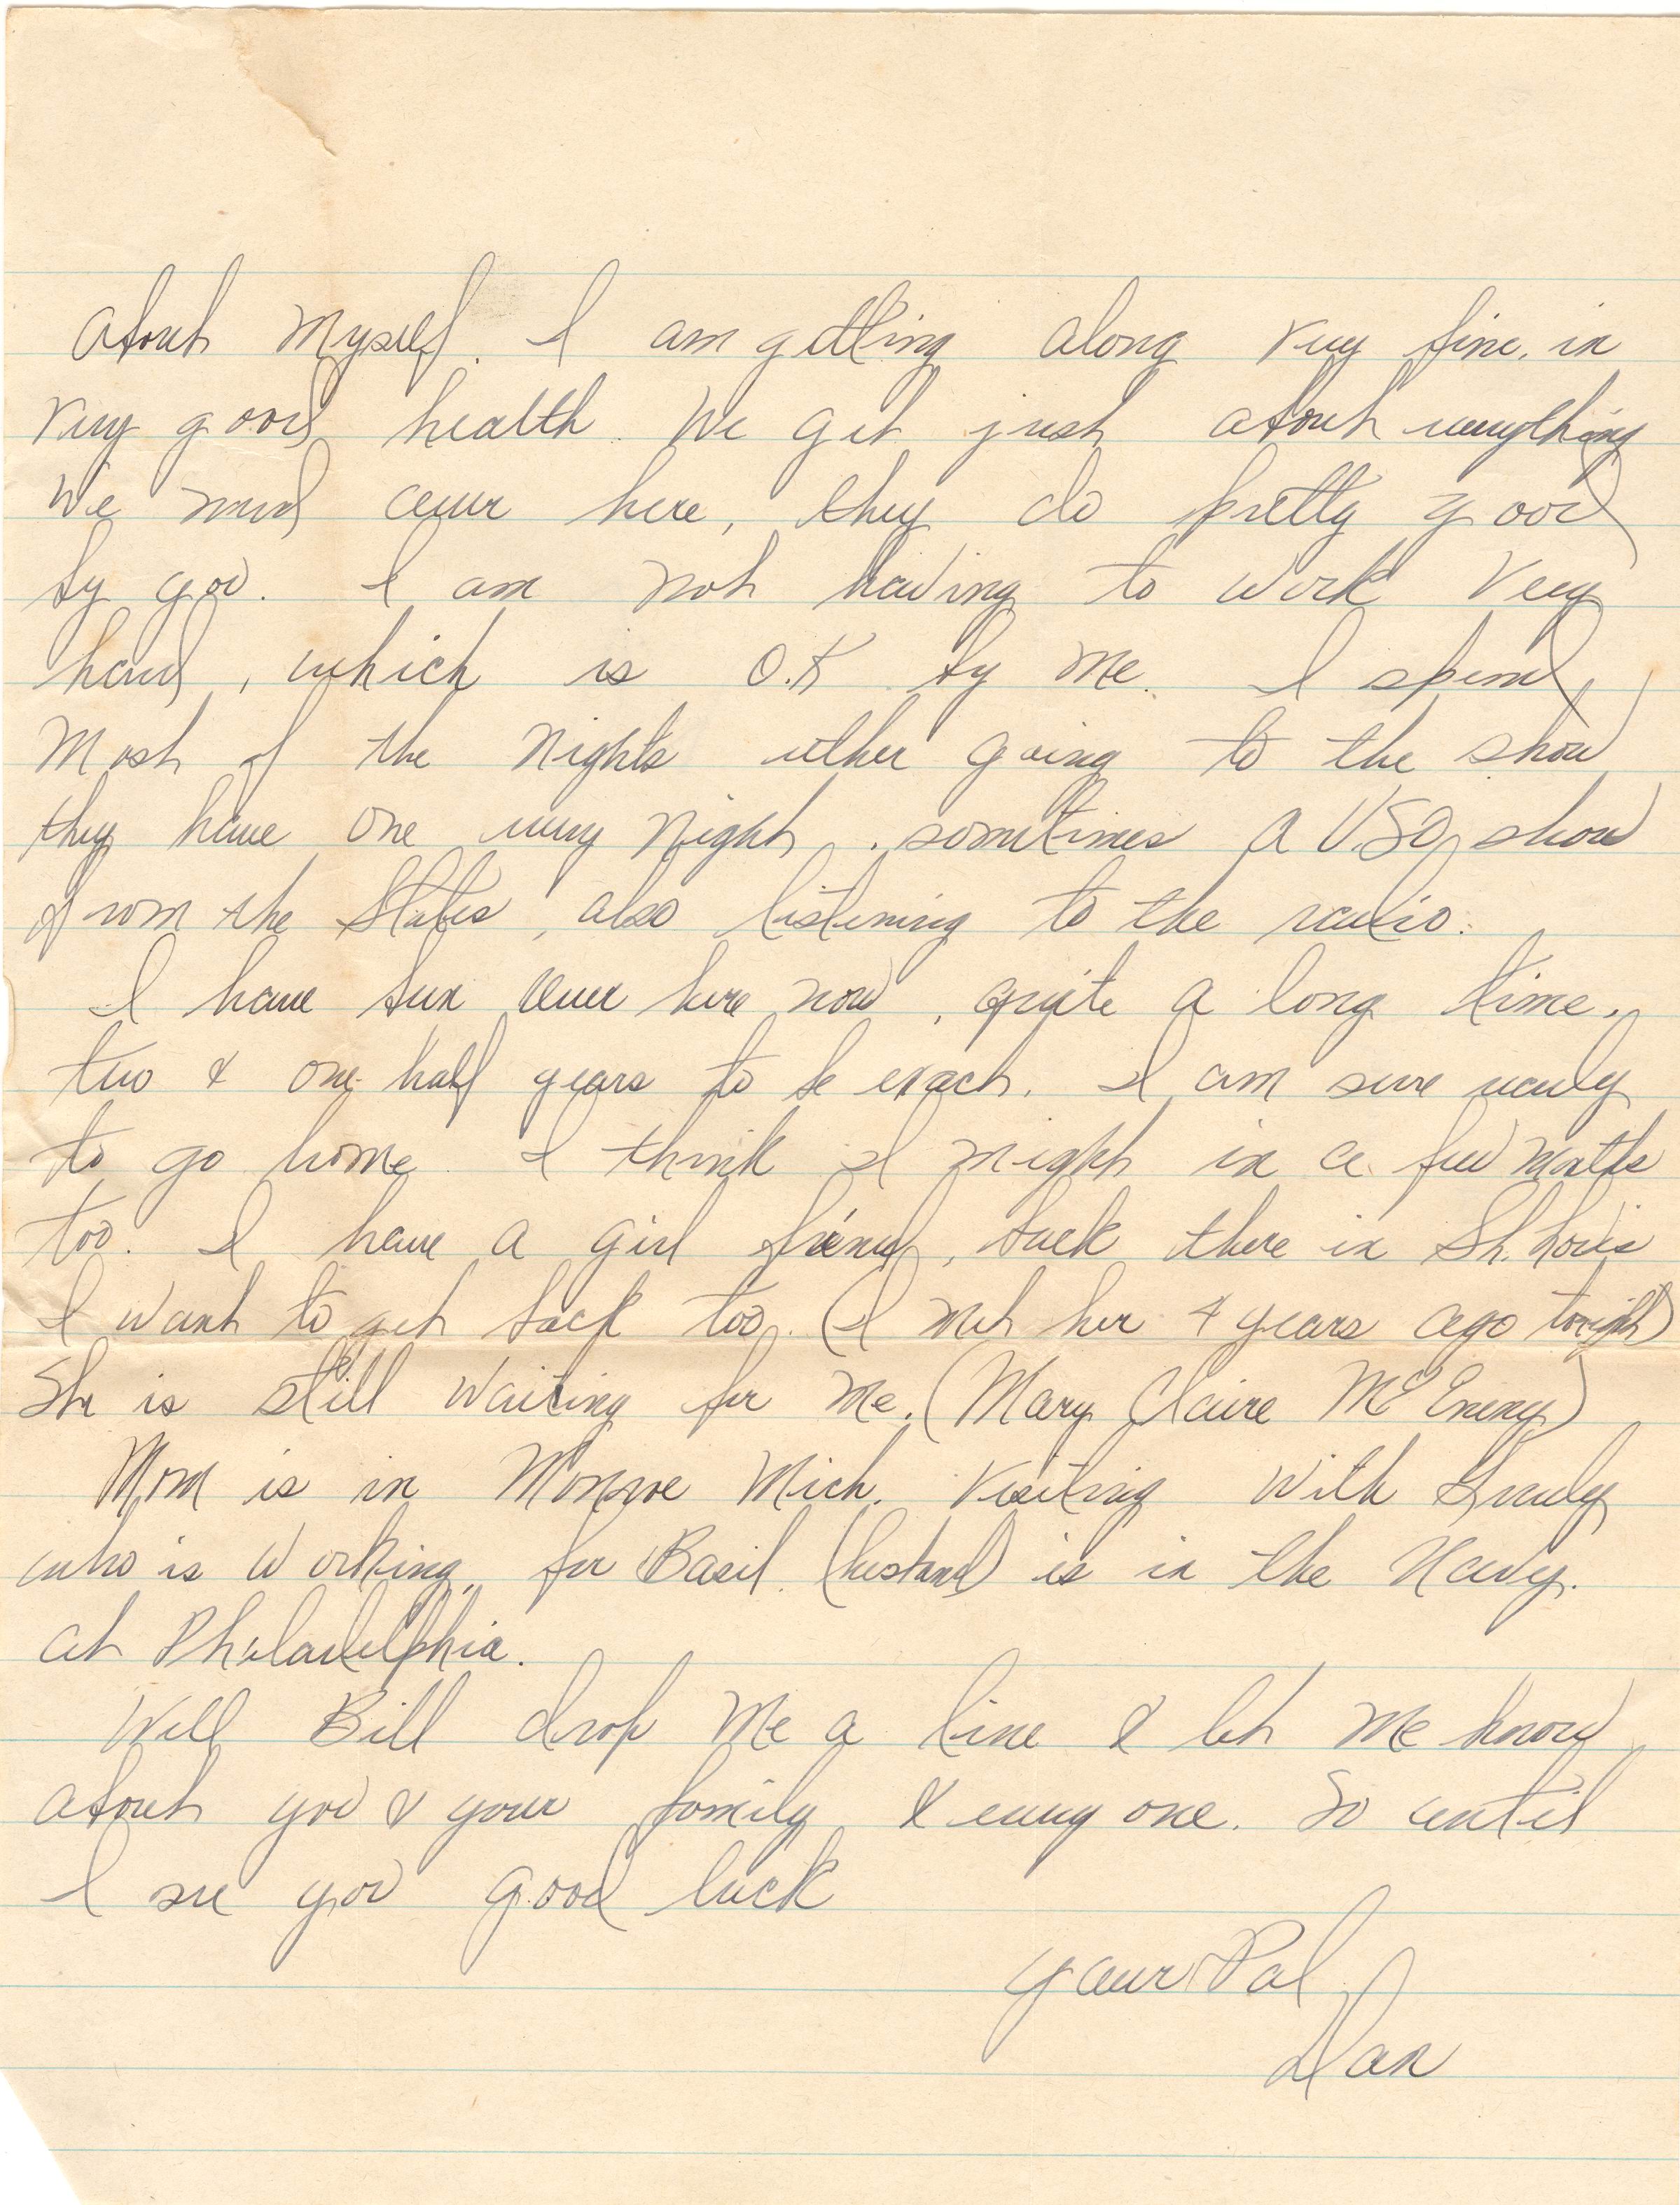 About Myself. I am getting along very fine, in
very good health. We get just about everything
We need over here, they do pretty good
by you. I am not having to work very
hard, which is O.K by me. I spend
Most of the Nights either going to the show
they have one every Night, sometimes a USO show
from the States, also listening to the radio.
I have been over here now, quite a long time.
two & one half years to be exact. I am sure ready
to go home. I think I might in a few Months
too. I have a girl friend, back there in St. Louis
I want to get back too. (I met her 4 years ago tonight)
She is still waiting for me. (Mary Claire McEneny)
Mom is in Monroe Mich. Visiting With
who is Working, for Basil (husband) is in the Navy.
at Philadelphia.
Well Bill drop Me a line & let Me know
about you & your family & every one. So until
I see you good luck
your Pal
Dan